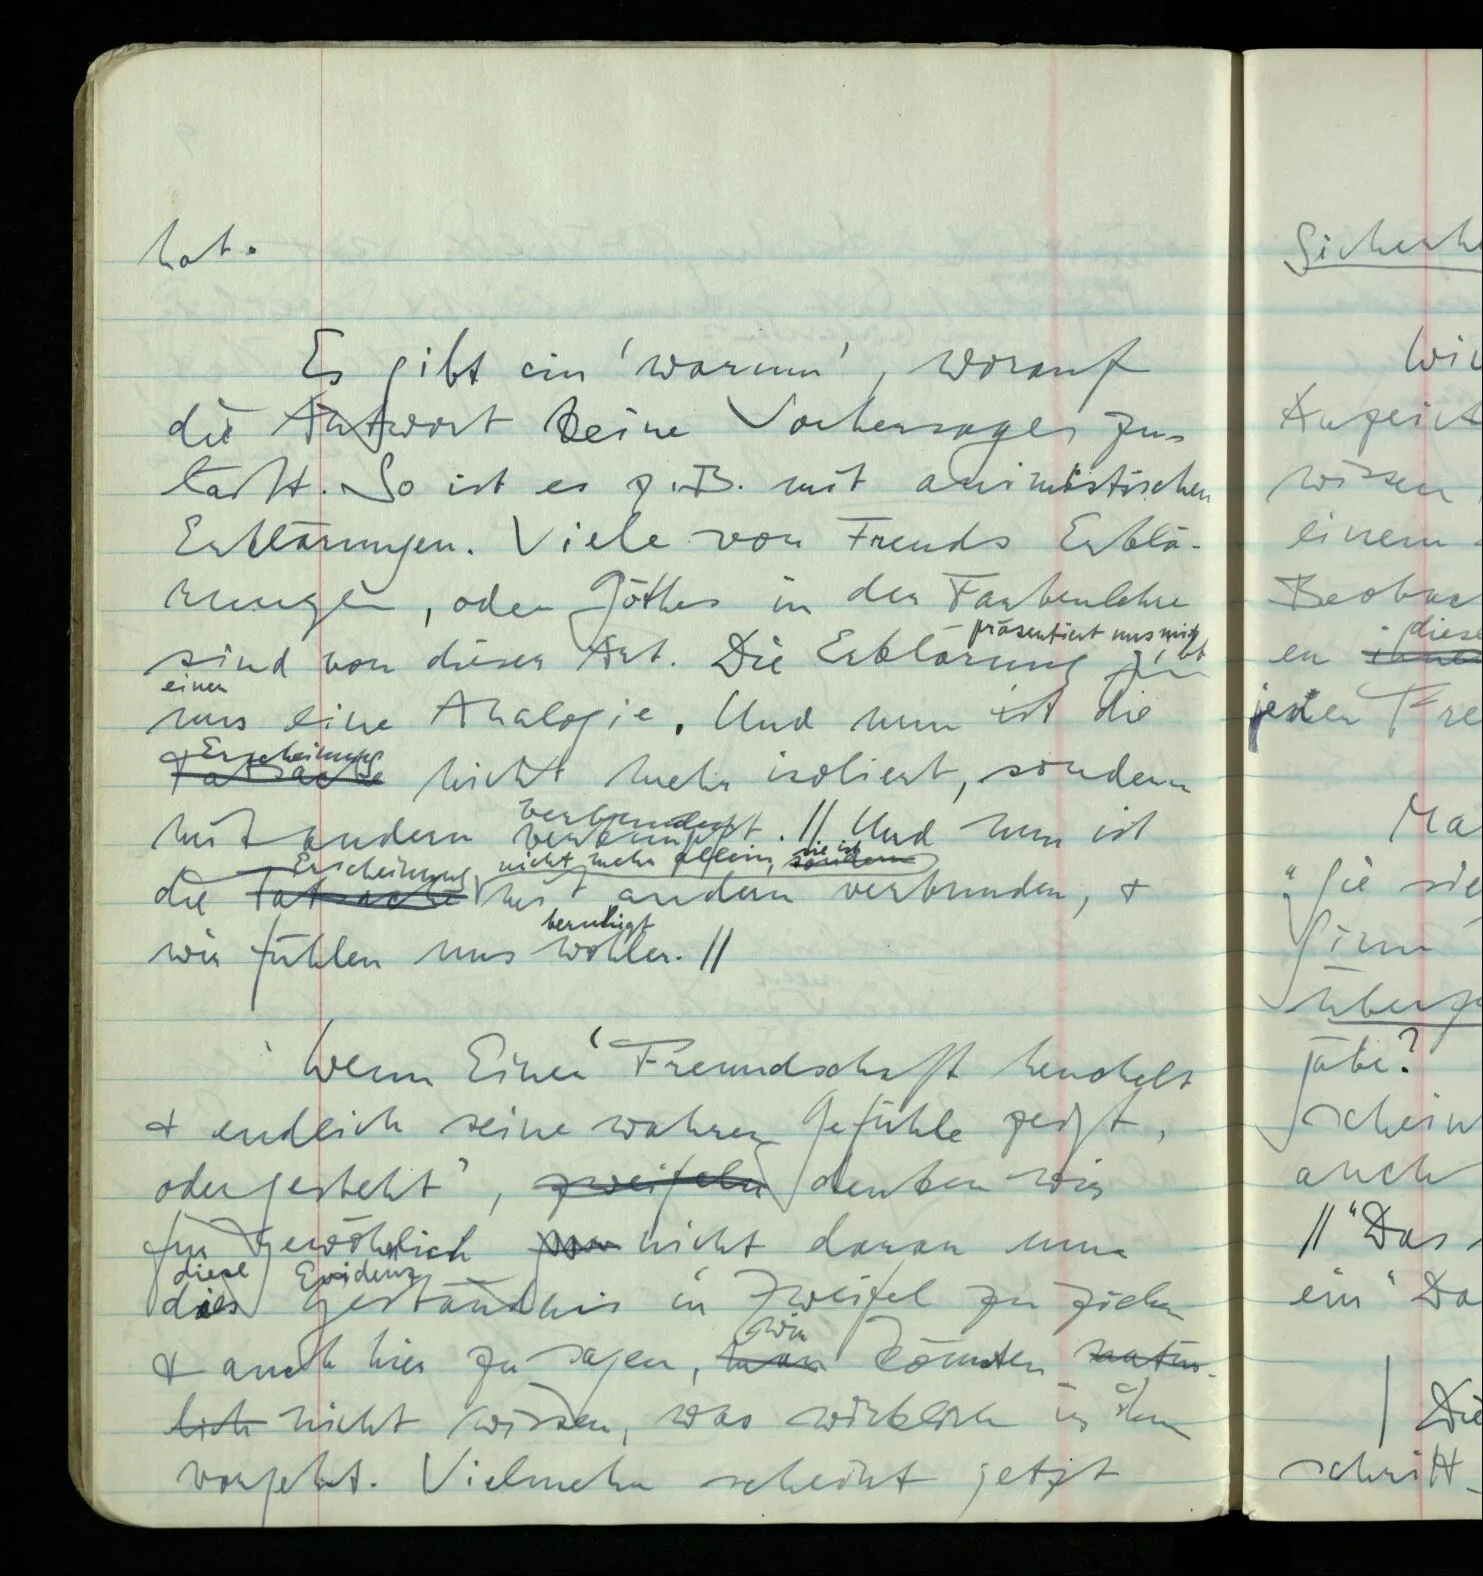 hat.
Es gibt ein 'warum', worauf
die Antwort keine Vorhersagen zu-
läßt. So ist es z.B. mit animistischen
Erklärungen. Viele von Freuds Erklä-
rungen, oder Göthes in der Farbenlehre
präsentiert uns mit
sind von dieser Art. Die Erklärung gibt
einer
uns eine Analogie. Und nun ist die
Erscheinung
Tatsache nicht mehr isoliert, sondern
verbunden
mit andern verknüpft. // Und nun ist
Erscheinung nicht mehr allein, sie ist sondern
die Tatsache mit andern verbunden, +
beruhigt
wir fühlen uns wohler. //
Wenn Einer 'Freundschaft heuchelt
+ endlich seine wahren Gefühle zeigt,
oder gesteht', zweifeln denken wir
für gewöhnlich nicht daran nun
diese Evidenz
dies Geständnis in Zweifel zu ziehen
wir
+ auch hier zu sagen, man könnten natür-
lich nicht wissen, was wirklich in ihm
vorgeht. Vielmehr scheint jetzt
Sicherh
Wir
Anzeich
wissen
einem
Beobac
diese
en ihne
jeden Fre
Ma
"Sie sie
Sinn
überg
gäbe?
schein
auch
// "Das
ein "Da
| Die
schritt-